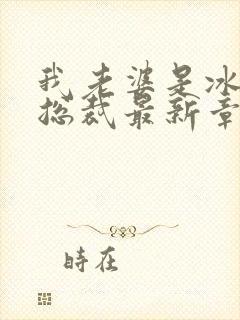 我老婆是冰
总裁最新章
时在